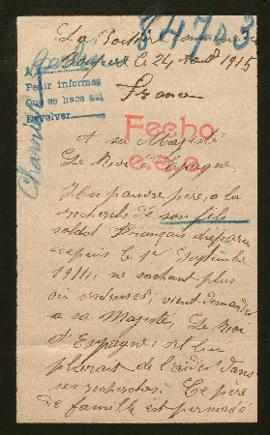 84703
Le 24 Août 1915
France
Pedir informes
Que se haca aqui
Devolver
Fecho
e.s.o
A sa Majesté
Le Roi d'Espagne
Un pauvre père, a la
recherche de son fils
soldat Français disparu
depuis le 1er Septembre
1914, ne sachant plus
où s'adresser, vient demander
a sa Majesté, Le Roi
d'Espagne, s'il lui
plairait de l'aider dans
ses recherches. Ce père
de famille est persuadé